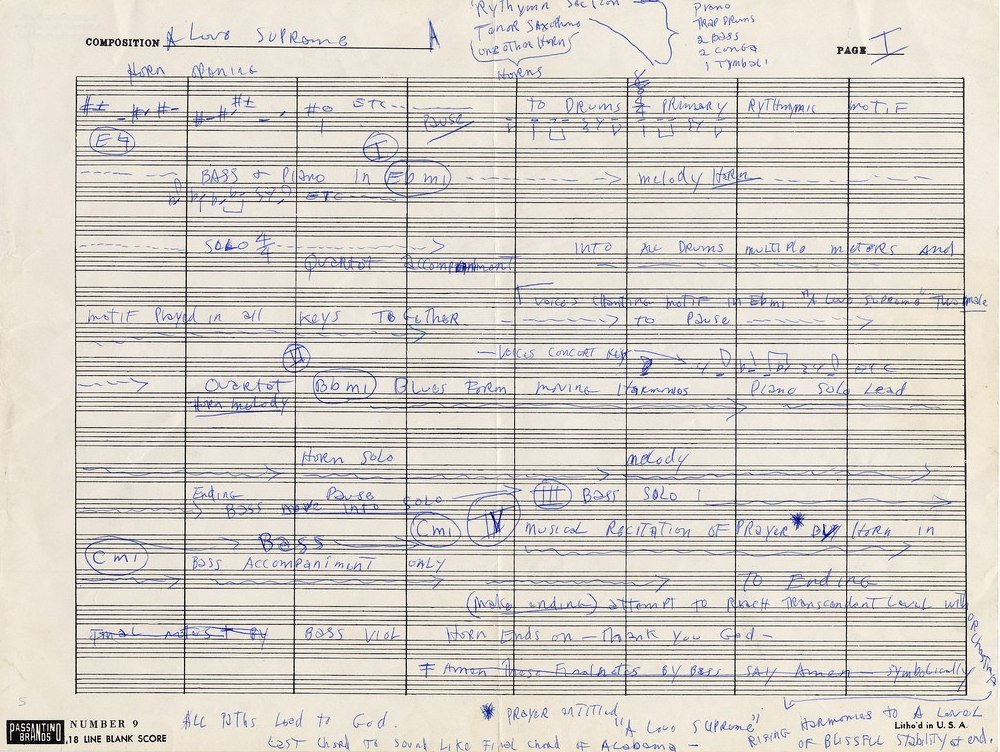 "Rythymn Section
Tenor Saxophone
(one other Horn)
Piano
Trap Drums
2 Bass
2 Conga
1 Tymbali
COMPOSITION A Love Supreme A
PAGE I
Horn opening
Horns
ETC
Pause
TO DRUMS 4/4 PRIMARY RYTHYMIC MOTIF
E♮
I
BASS + Piano IN Ebmi melody Horn
ETC
SOLO 4/4 INTO ALL DRUMS multiple meters And
Quartet Accompaniment
Voices Chanting motif in Ebmi "A Love Supreme" Two male
motif Played in all Keys Together to Pause
II
Voices Concert Key ETC
Quartet Bbmi Blues Form moving Harmonies Piano Solo Lead
Horn melody
Horn Solo melody
Ending Pause
Bass move into Solo III Bass SOLO 1
Cmi IV Musical Recitation OF Prayer * By Horn in
Bass
Cmi Bass Accompaniment ONLY
TO Ending
(Make ending) attempt to Reach Transcendent Level with
Final notes By Bass Viol Horn Ends on - Thank You God -
Amen These Final notes By Bass SAY Amen Symbolically
ORCHESTRA
ALL Paths Lead to God.
Last Chord To Sound Like Final Chord of Alabama -
* Prayer entitled
"A Love Supreme"
Rising Harmonies to A Level
OF Blissful Stability at end.
PASSANTINO
BRANDS
NUMBER 9
18 LINE BLANK SCORE
Litho'd in U. S. A.